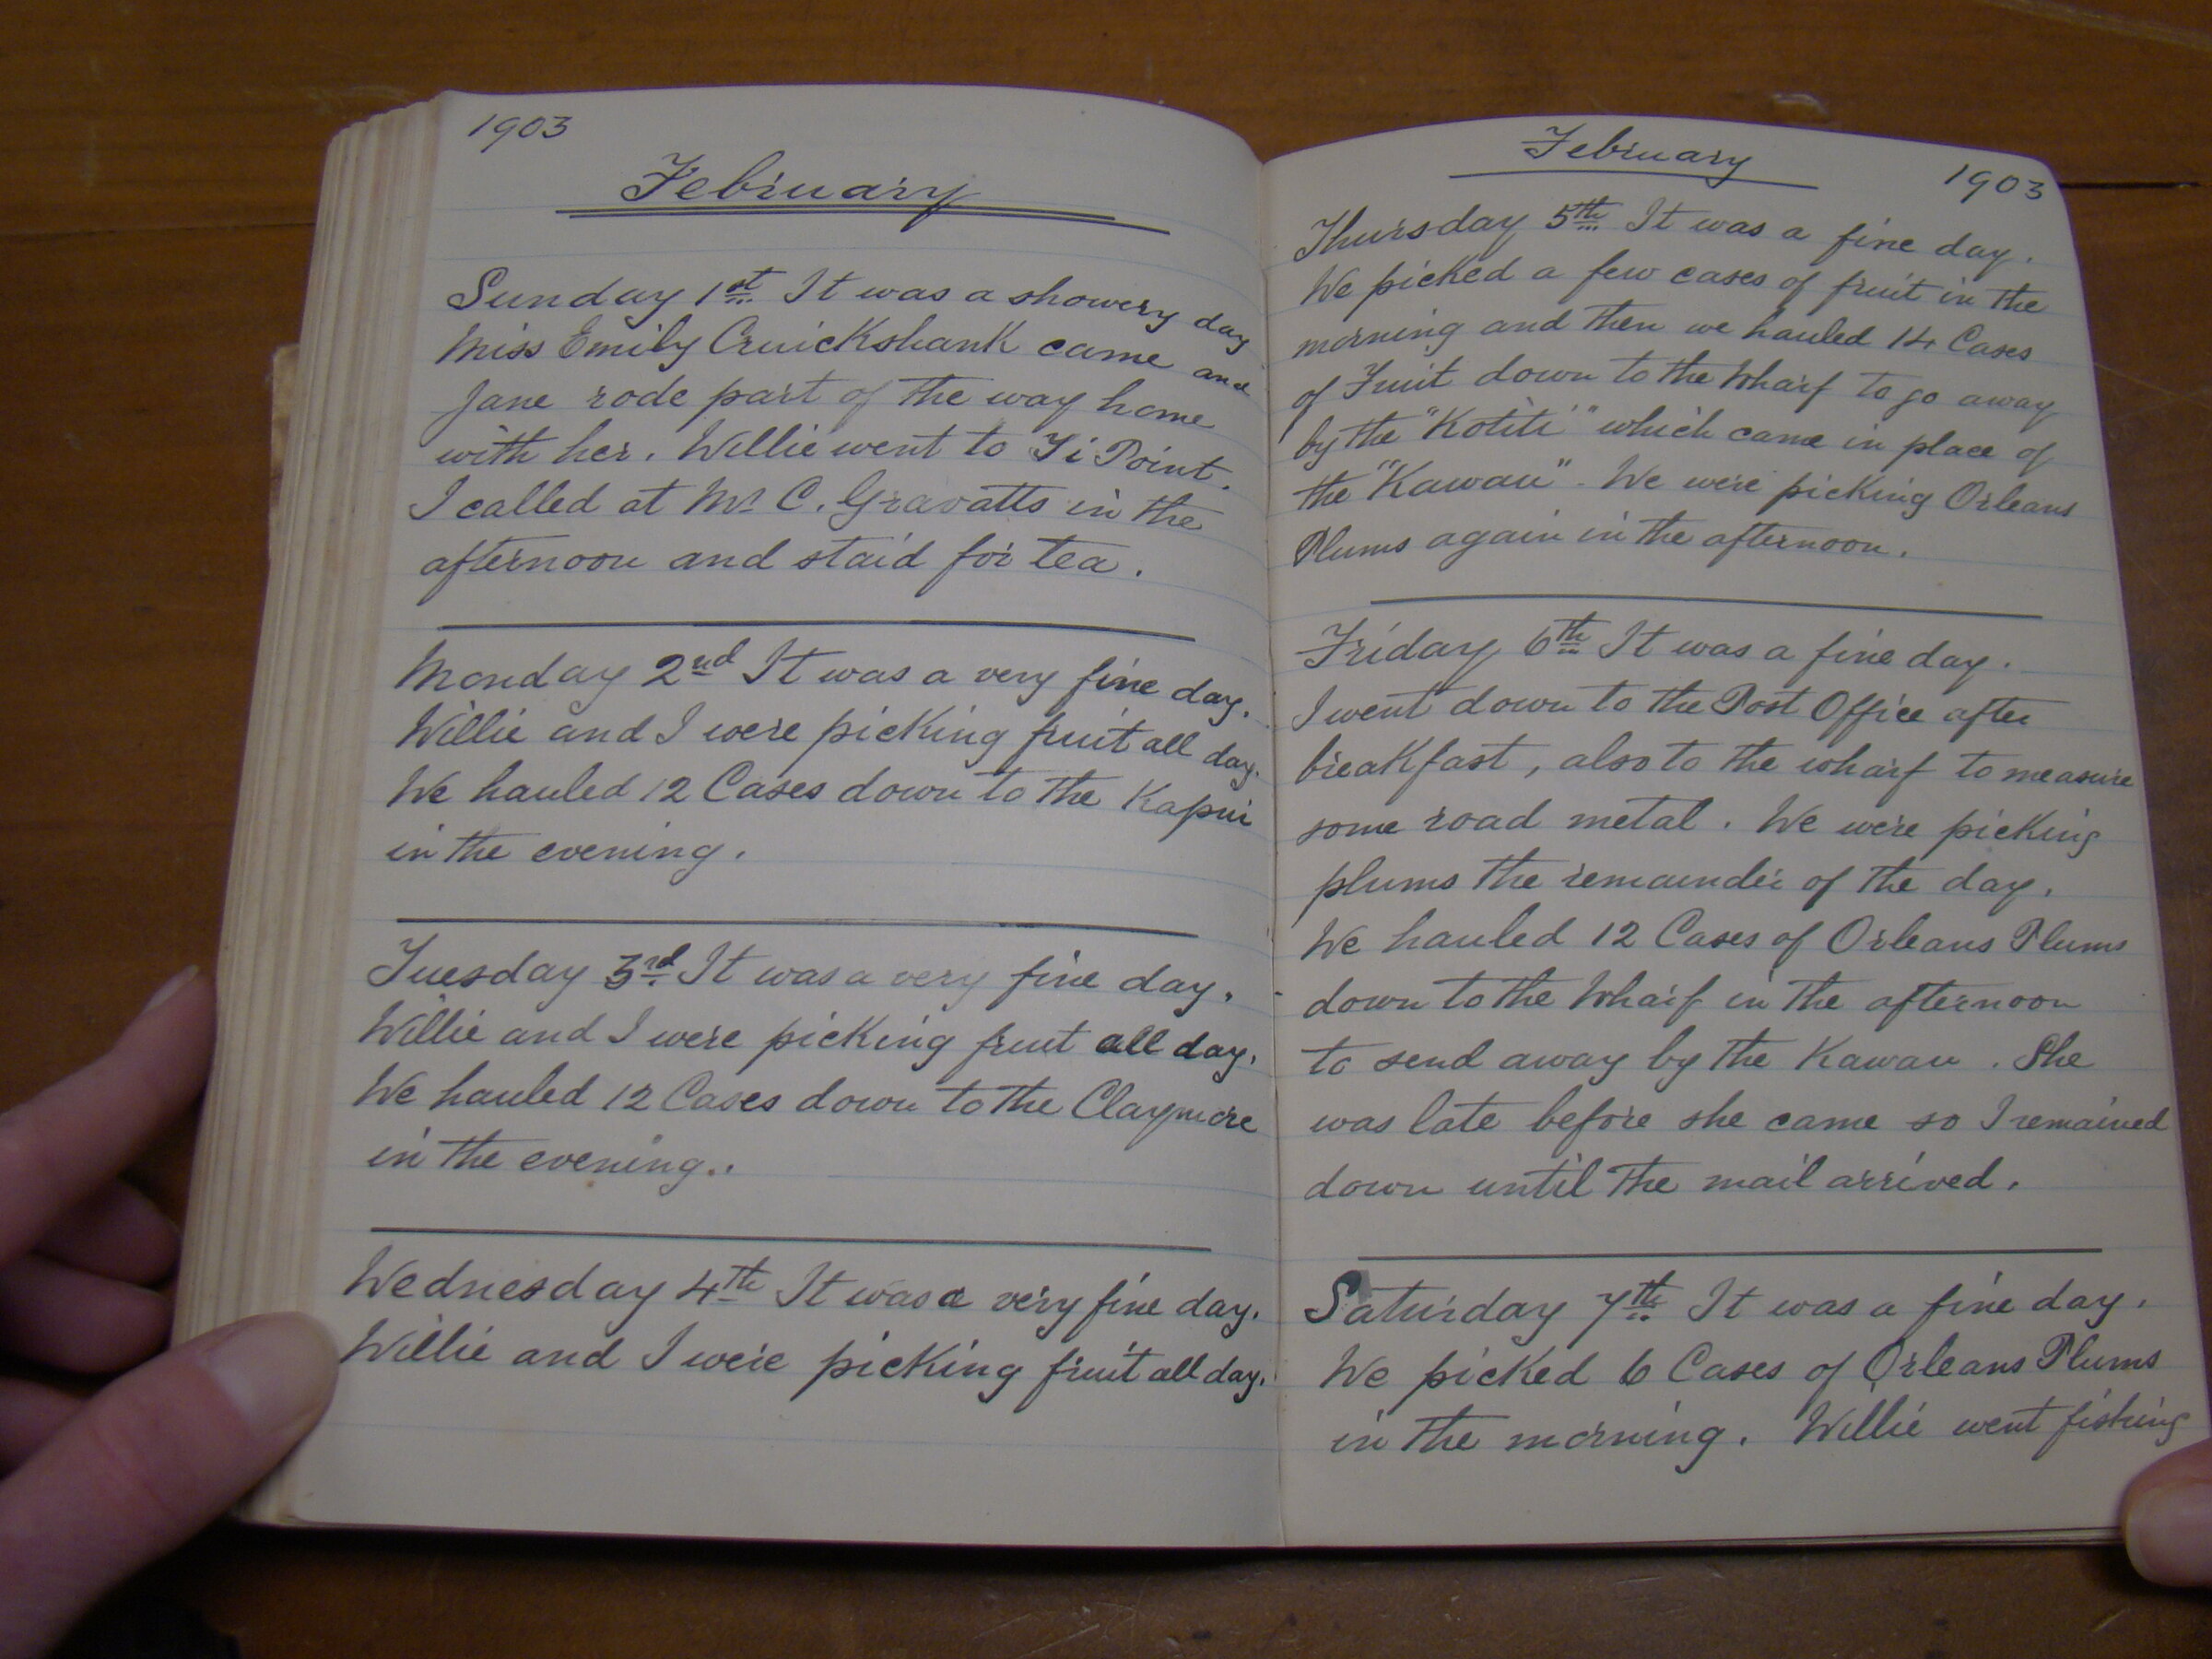 1903
February
Sunday 1st It was a showery day
Miss Emily Cruickshank came and
Jane rode part of the way home
with her. Willie went to Ti Point.
I called at Mr C. Gravatts in the
afternoon and staid for tea.
Monday 2nd It was a very fine day.
Willie and I were picking fruit all day.
We hauled 12 Cases down to the Kapui
in the evening.
Tuesday 3rd It was a very fine day.
Willie and I were picking fruit all day.
We hauled 12 Cases down to the Claymore
in the evening..
Wednesday 4th It was a very fine day.
Willie and I were picking fruit all day.
February
1903
Thursday 5th It was a fine day.
We picked a few cases of fruit in the
morning and then we hauled 14 Cases
of Fruit down to the Wharf to go away
by the "Kotiti" which came in place of
the "Kawau". We were picking Orleans
Plums again in the afternoon.
Friday 6th It was a fine day.
I went down to the Post Office after
breakfast, also to the wharf to measure
some road metal. We were picking
plums the remainder of the day.
We hauled 12 Cases of Orleans Plums
down to the Wharf in the afternoon
to send away by the Kawau. She
was late before she came so I remained
down until the mail arrived.
Saturday 7th It was a fine day.
We picked 6 Cases of Orleans Plums
in the morning. Willie went fishing